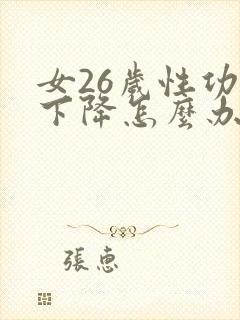 女26歲性功
下降怎麼办
張惠